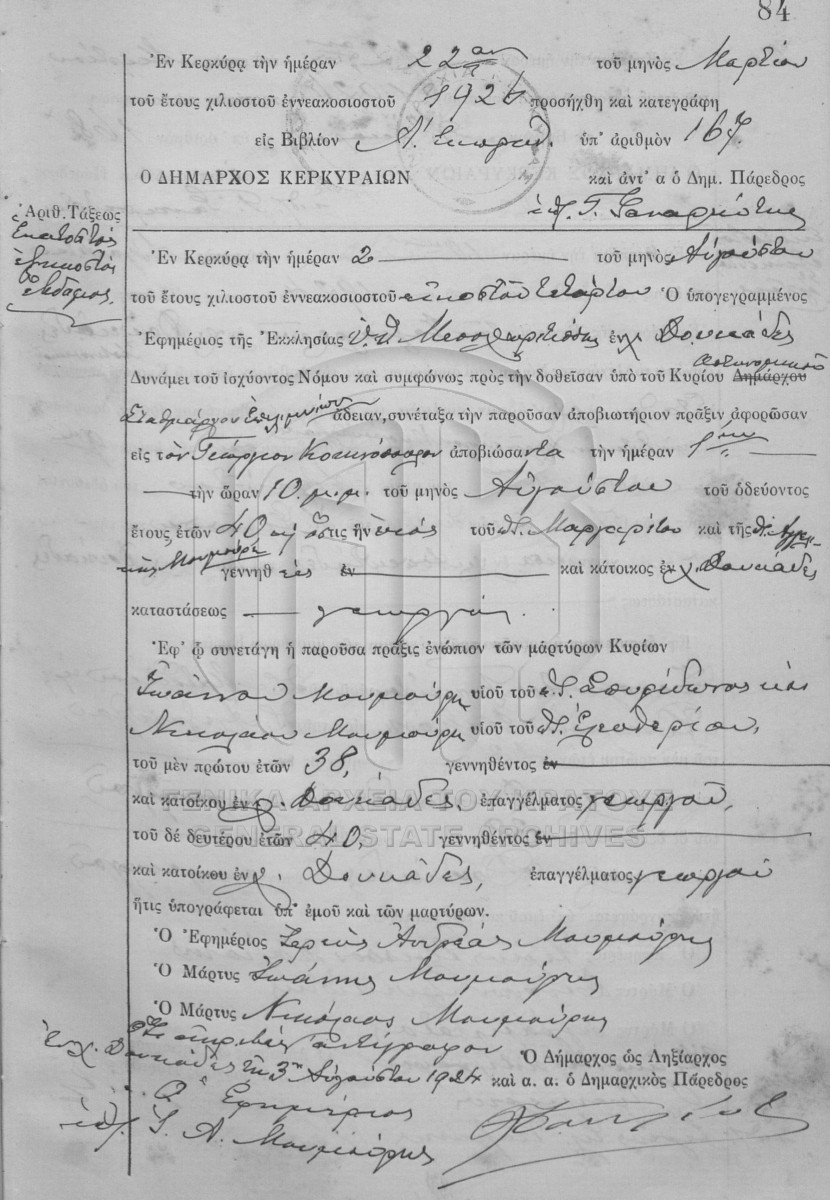 84
Ἐν Κερκύρᾳ τὴν ἡμέραν 22αν τοῦ μηνὸς Μαρτίου
τοῦ ἔτους χιλιοστοῦ ἐννεακοσιοστοῦ 1926 προσήχθη καὶ κατεγράφη
εἰς Βιβλίον Α΄. ὑπ' ἀριθμὸν 167.
Ο ΔΗΜΑΡΧΟΣ ΚΕΡΚΥΡΑΙΩΝ καὶ ἀντ' α ὁ Δημ. Πάρεδρος
Ἀριθ. Τάξεως
Ἑκατοστὸς
Ἐν Κερκύρᾳ τὴν ἡμέραν 2 τοῦ μηνὸς Αὐγούστου
τοῦ ἔτους χιλιοστοῦ ἐννεακοσιοστοῦ εἰκοστοῦ τετάρτου Ὁ ὑπογεγραμμένος
Ἐφημέριος τῆς Ἐκκλησίας Δουκάδες
Ἀστυνομικοῦ
Δυνάμει τοῦ ἰσχύοντος Νόμου καὶ συμφώνως πρὸς τὴν δοθεῖσαν ὑπὸ τοῦ Κυρίου Δημάρχου
Σταθμάρχου ἄδειαν, συνέταξα τὴν παροῦσαν ἀποβιωτήριον πρᾶξιν ἀφορῶσαν
εἰς τὸν Γεώργιον ἀποβιώσαντα τὴν ἡμέραν 1ην
τὴν ὥραν 10 μ.μ. τοῦ μηνὸς Αὐγούστου τοῦ ὁδεύοντος
ἔτους, ἐτῶν 40 ὅστις ἦν υἱὸς τοῦ Μαργαρίτου καὶ τῆς
γεννηθεὶς ἐν καὶ κάτοικος ἐν χ. Δουκάδες
καταστάσεως γεωργός.
Ἐφ' ᾧ συνετάγη ἡ παροῦσα πρᾶξις ἐνώπιον τῶν μαρτύρων Κυρίων
Ἰωάννου Μουμούρη υἱοῦ τοῦ Σπυρίδωνος καὶ
Νικολάου Μουμούρη υἱοῦ τοῦ Ἐλευθερίου,
τοῦ μὲν πρώτου ἐτῶν 38, γεννηθέντος ἐν
καὶ κατοίκου ἐν χ. Δουκάδες, ἐπαγγέλματος γεωργοῦ,
τοῦ δέ δευτέρου ἐτῶν 40, γεννηθέντος ἐν
καὶ κατοίκου ἐν χ. Δουκάδες, ἐπαγγέλματος γεωργοῦ
ἥτις ὑπογράφεται ὑπ' ἐμοῦ καὶ τῶν μαρτύρων.
Ὁ Ἐφημέριος Ἱερεὺς Ἀνδρέας Μουμούρης
Ὁ Μάρτυς Ἰωάννης Μουμούρης
Ὁ Μάρτυς Νικόλαος Μουμούρης
ἀκριβὲς ἀντίγραφον
Ἐν χ. Δουκάδες τῇ 3ῃ Αὐγούστου 1924
Ὁ Ἐφημέριος
Α. Μουμούρης
Ὁ Δήμαρχος ὡς Ληξίαρχος
καὶ α. α. ὁ Δημαρχικὸς Πάρεδρος
ΓΕΝΙΚΑ ΑΡΧΕΙΑ ΤΟΥ ΚΡΑΤΟΥΣ
GENERAL STATE ARCHIVES